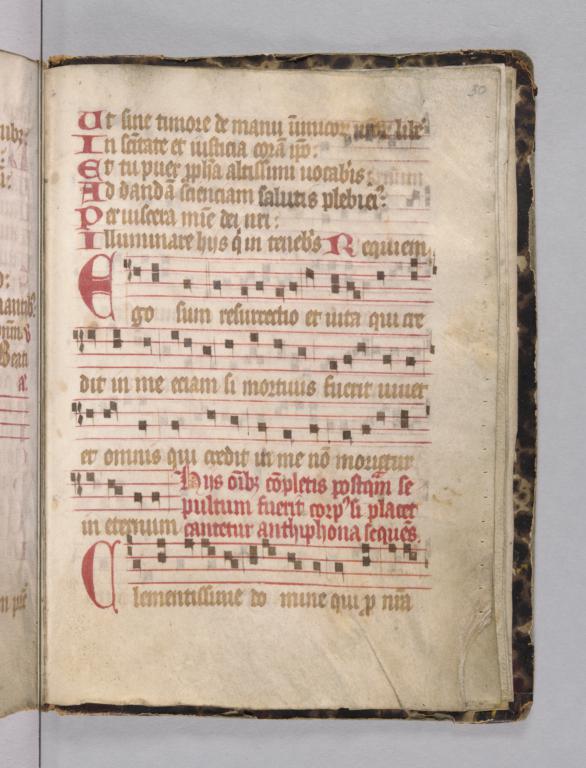 30
Ut sine timore de manu inimicor nror libe
In scitate et iusticia corā ipo:
Et tu puer ppha altissimi uocabis:
Ad dandā scienciam salutis plebi ei:
Per uiscera mīe dei nri:
Illuminare hijs q in tenebs Requiem
Ego sum resurrectio et uita qui cre
dit in me eciam si mortuus fuerit uiuet
et omnis qui credit in me nō morietur
Hijs oībꝫ cōpletis postqām se
pultum fuerit corpꝰ si placet
in eternum cantetur anthiphona sequēs.
Clementissime do mine qui p nrā